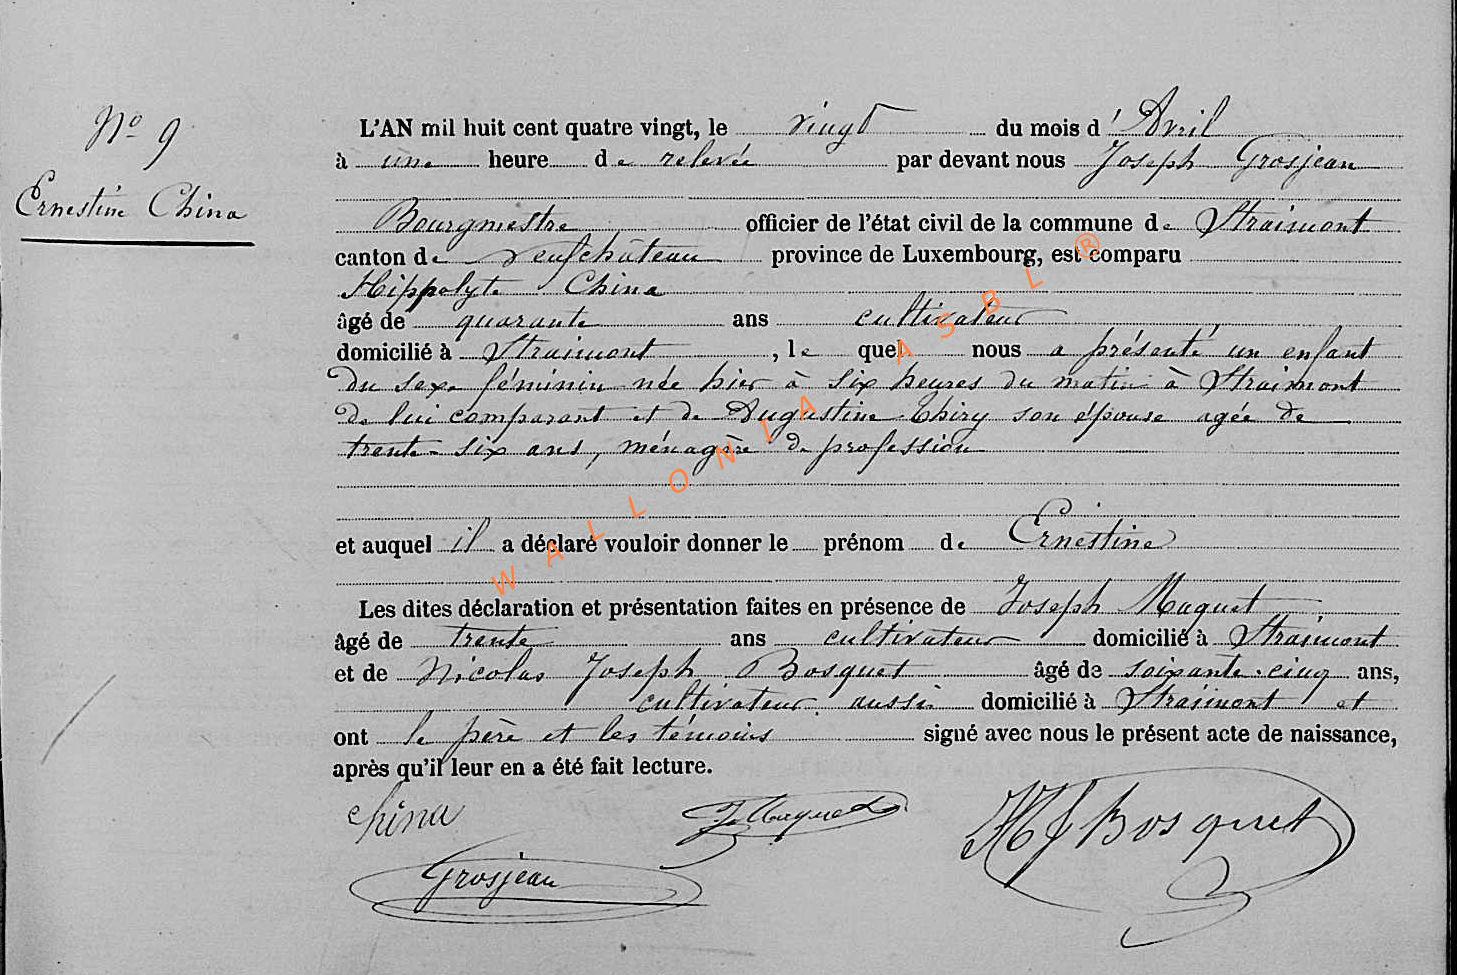 N° 9
Ernestine China
L'AN mil huit cent quatre vingt, le vingt du mois d'Avril
à une heure de relevée par devant nous Joseph Grosjean
Bourgmestre officier de l'état civil de la commune de Straimont
canton de Neufchâteau province de Luxembourg, est comparu
Hippolyte China
âgé de quarante ans cultivateur
domicilié à Straimont, le quel nous a présenté un enfant
du sexe féminin née hier à six heures du matin à Straimont
de lui comparant et de Augustine Thiry son épouse agée de
trente-six ans, ménagère de profession
et auquel il a déclaré vouloir donner le prénom de Ernestine
Les dites déclaration et présentation faites en présence de Joseph Maquet
âgé de trente ans cultivateur domicilié à Straimont
et de Nicolas Joseph Bosquet âgé de soixante-cinq ans,
cultivateur aussi domicilié à Straimont et
ont le père et les témoins signé avec nous le présent acte de naissance,
après qu'il leur en a été fait lecture.
China J Maquet NJ Bosquet
Grosjean
WALLONIA ASBL ®